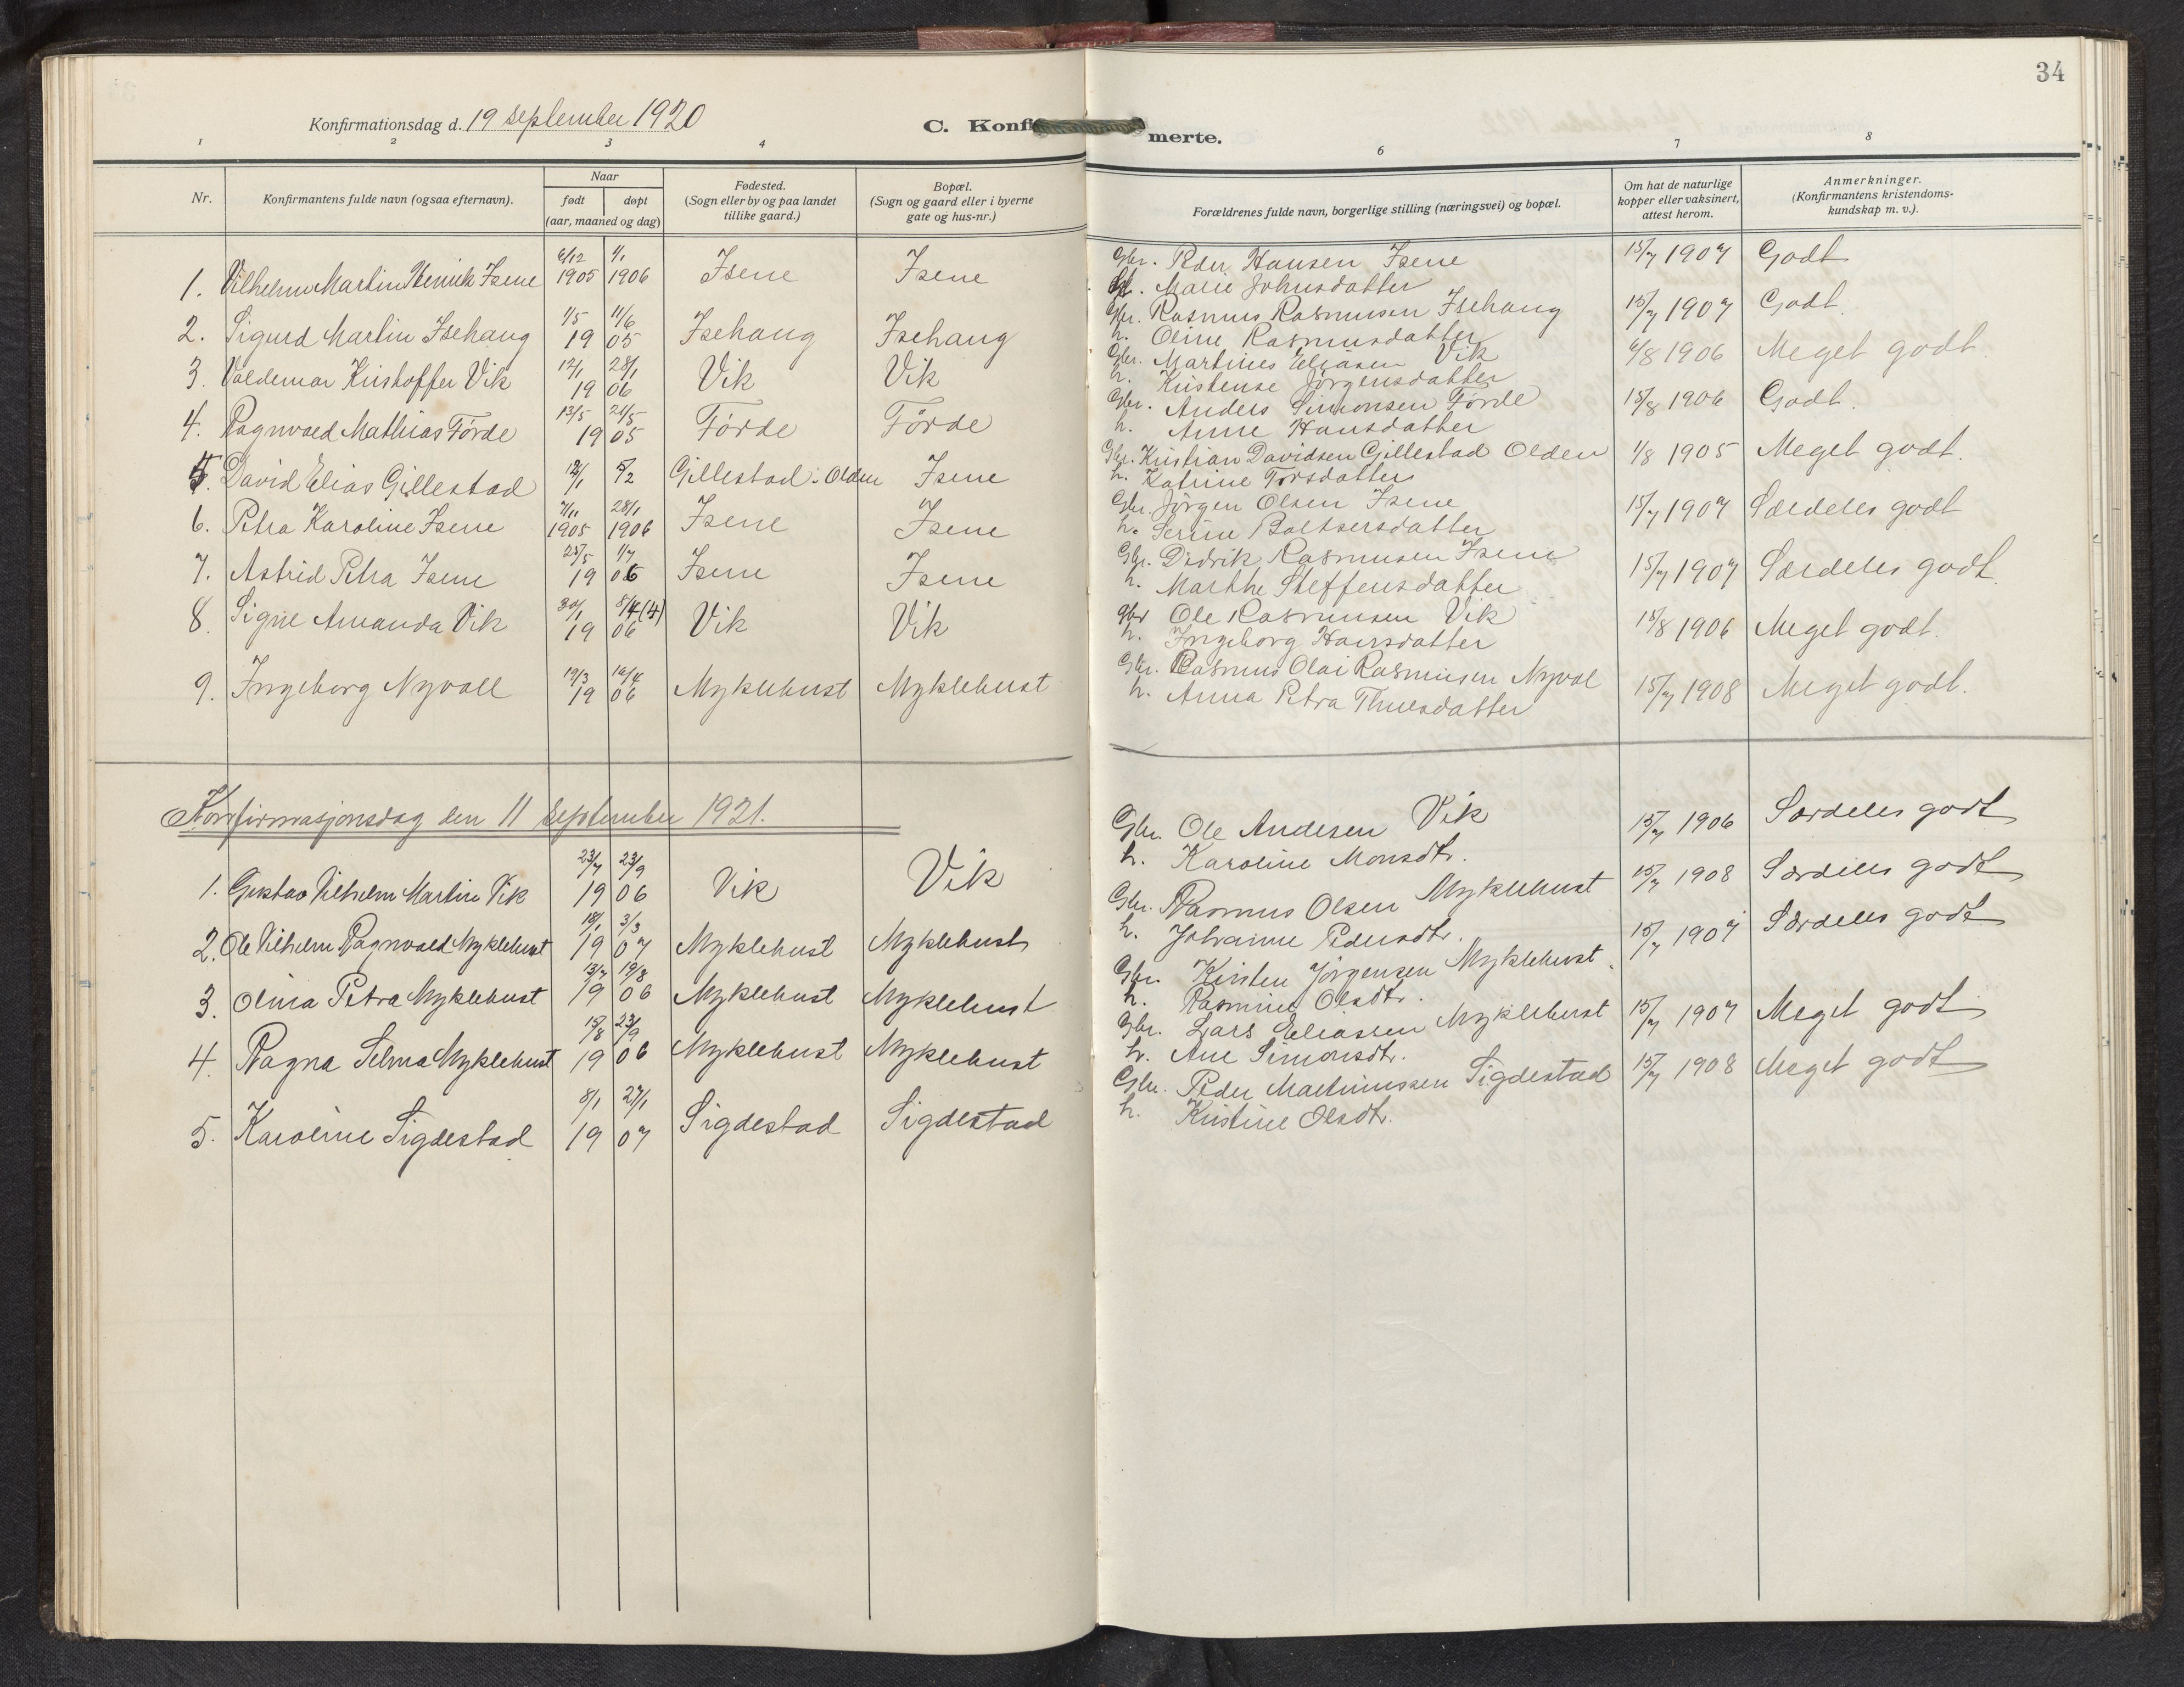 34
Konfirmationsdag d. 19 september 1920
C. Konfi merte.
1 2 3 4 6 7 8
Nr. Konfirmantens fulde navn (ogsaa efternavn). Naar født døpt (aar, maaned og dag) Fødested. (Sogn eller by og paa landet tillike gaard.) Bopæl. (Sogn og gaard eller i byerne gate og hus-nr.) Forældrenes fulde navn, borgerlige stilling (næringsvei) og bopæl. Om hat de naturlige kopper eller vaksinert, attest herom. Anmerkninger. (Konfirmantens kristendomskundskap m. v.).
1. Vilhelm Martin Henrik Isene 6/12 1905 1/1 1906 Isene Isene Gbr. Peder Hansen Isene 15/7 1907 Godt
h. Marie Johnsdatter
2. Sigurd Martin Isehaug 1/5 11/6 19 05 Isehaug Isehaug Gbr. Rasmus Rasmusen Isehaug 15/7 1907 Godt.
h. Oline Rasmusdatter
3. Valdemar Kristoffer Vik 12/1 28/1 19 06 Vik Vik Gbr. Martines Eliasen Vik 6/8 1906 Meget godt.
h. Kristense Jørgensdatter
4. Ragnvald Mathias Förde 13/5 21/5 19 05 Förde Förde Gbr. Anders Simonsen Förde 15/8 1906 Godt.
h. Anne Hansdatter
5. David Elias Gillestad 12/1 5/2 Gillestad i Olden Isene Gbr. Kristian Davidsen Gillestad Olden 1/8 1905 Meget godt.
h. Katrine Torsdatter
6. Petra Karoline Isene 7/11 1905 28/1 1906 Isene Isene Gbr. Jörgen Olsen Isene 15/7 1907 Særdeles godt
h. Serine Boltsersdatter
7. Astrid Petra Isene 25/5 1/7 19 06 Isene Isene Gbr. Didrik Rasmusen Isene 15/7 1907 Særdeles godt.
h. Marthe Steffensdatter
8. Signe Amanda Vik 30/1 8/4 (4) 19 06 Vik Vik gbr Ole Rasmusen Vik 15/8 1906 Meget godt.
h. Ingeborg Hansdatter
9. Ingeborg Nyvoll 19/3 16/4 19 06 Myklebust Myklebust Gbr. Rasmus Olai Rasmusen Nyvol 15/7 1908 Meget godt.
h. Anna Petra Thuesdatter
Konfirmasjonsdag den 11 september 1921.
1. Gustav Vilhelm Martin Vik 23/7 23/9 19 06 Vik Vik Gbr. Ole Andesen Vik 15/7 1906 Særdeles godt
h. Karoline Monsdtr.
2. Ole Vilhelm Ragnvald Myklebust 18/1 3/3 19 07 Myklebust Myklebust Gbr. Rasmus Olsen Myklebust 15/7 1908 Særdeles godt
h. Johanne Pedersdtr.
3. Olina Petra Myklebust 13/7 19/8 19 06 Myklebust Myklebust Gbr. Kirsten Jörgensen Myklebust. 15/7 1907 Særdeles godt
h. Rasmine Olsdtr.
4. Ragna Selma Myklebust 15/8 23/9 19 06 Myklebust Myklebust Gbr. Lars Eliassen Myklebust 15/7 1907 Meget godt
h. Ane Simonsdtr.
5. Karoline Sigdestad 8/1 27/1 19 07 Sigdestad Sigdestad Gbr. Peder Martinussen Sigdestad 15/7 1908 Meget godt
h. Kristine Olsdtr.